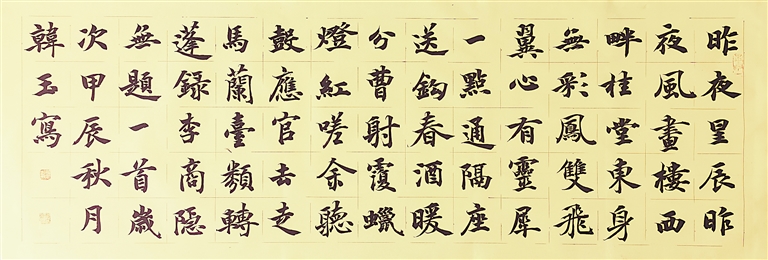 昨夜星辰昨
夜風畫樓西
畔桂堂東身
無彩鳳雙飛
翼心有靈犀
一點通隔座
送鈎春酒暖
分曹射覆蠟
燈紅嗟余聽
鼓應官去走
馬蘭臺類轉
蓬録李商隐
無題一首歲
次甲辰秋月
韓玉寫